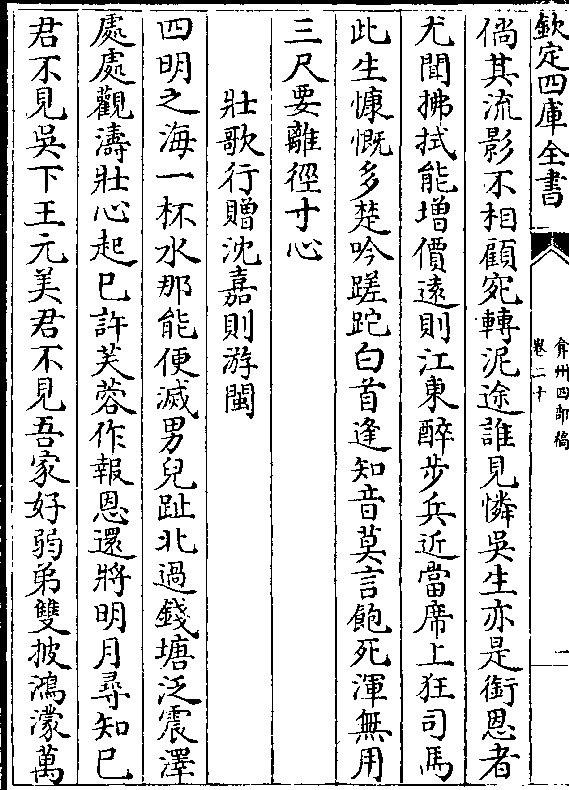 欽定四庫全書
弇州四部稿
卷二十
一
倘其流影不相顧宛轉泥途誰見憐吳生亦是銜恩者
尤聞拂拭能增價遠則江東醉步兵近當席上狂司馬
此生慷慨多楚吟蹉跎白首逢知音莫言飽死渾無用
三尺要離徑寸心
壯歌行贈沈嘉則游閩
四明之海一杯水那能便滅男兒趾北過錢塘泛震澤
處處觀濤壯心起已許芙蓉作報恩還將明月尋知己
君不見吳下王元美君不見吾家好弱弟雙披鴻濛萬